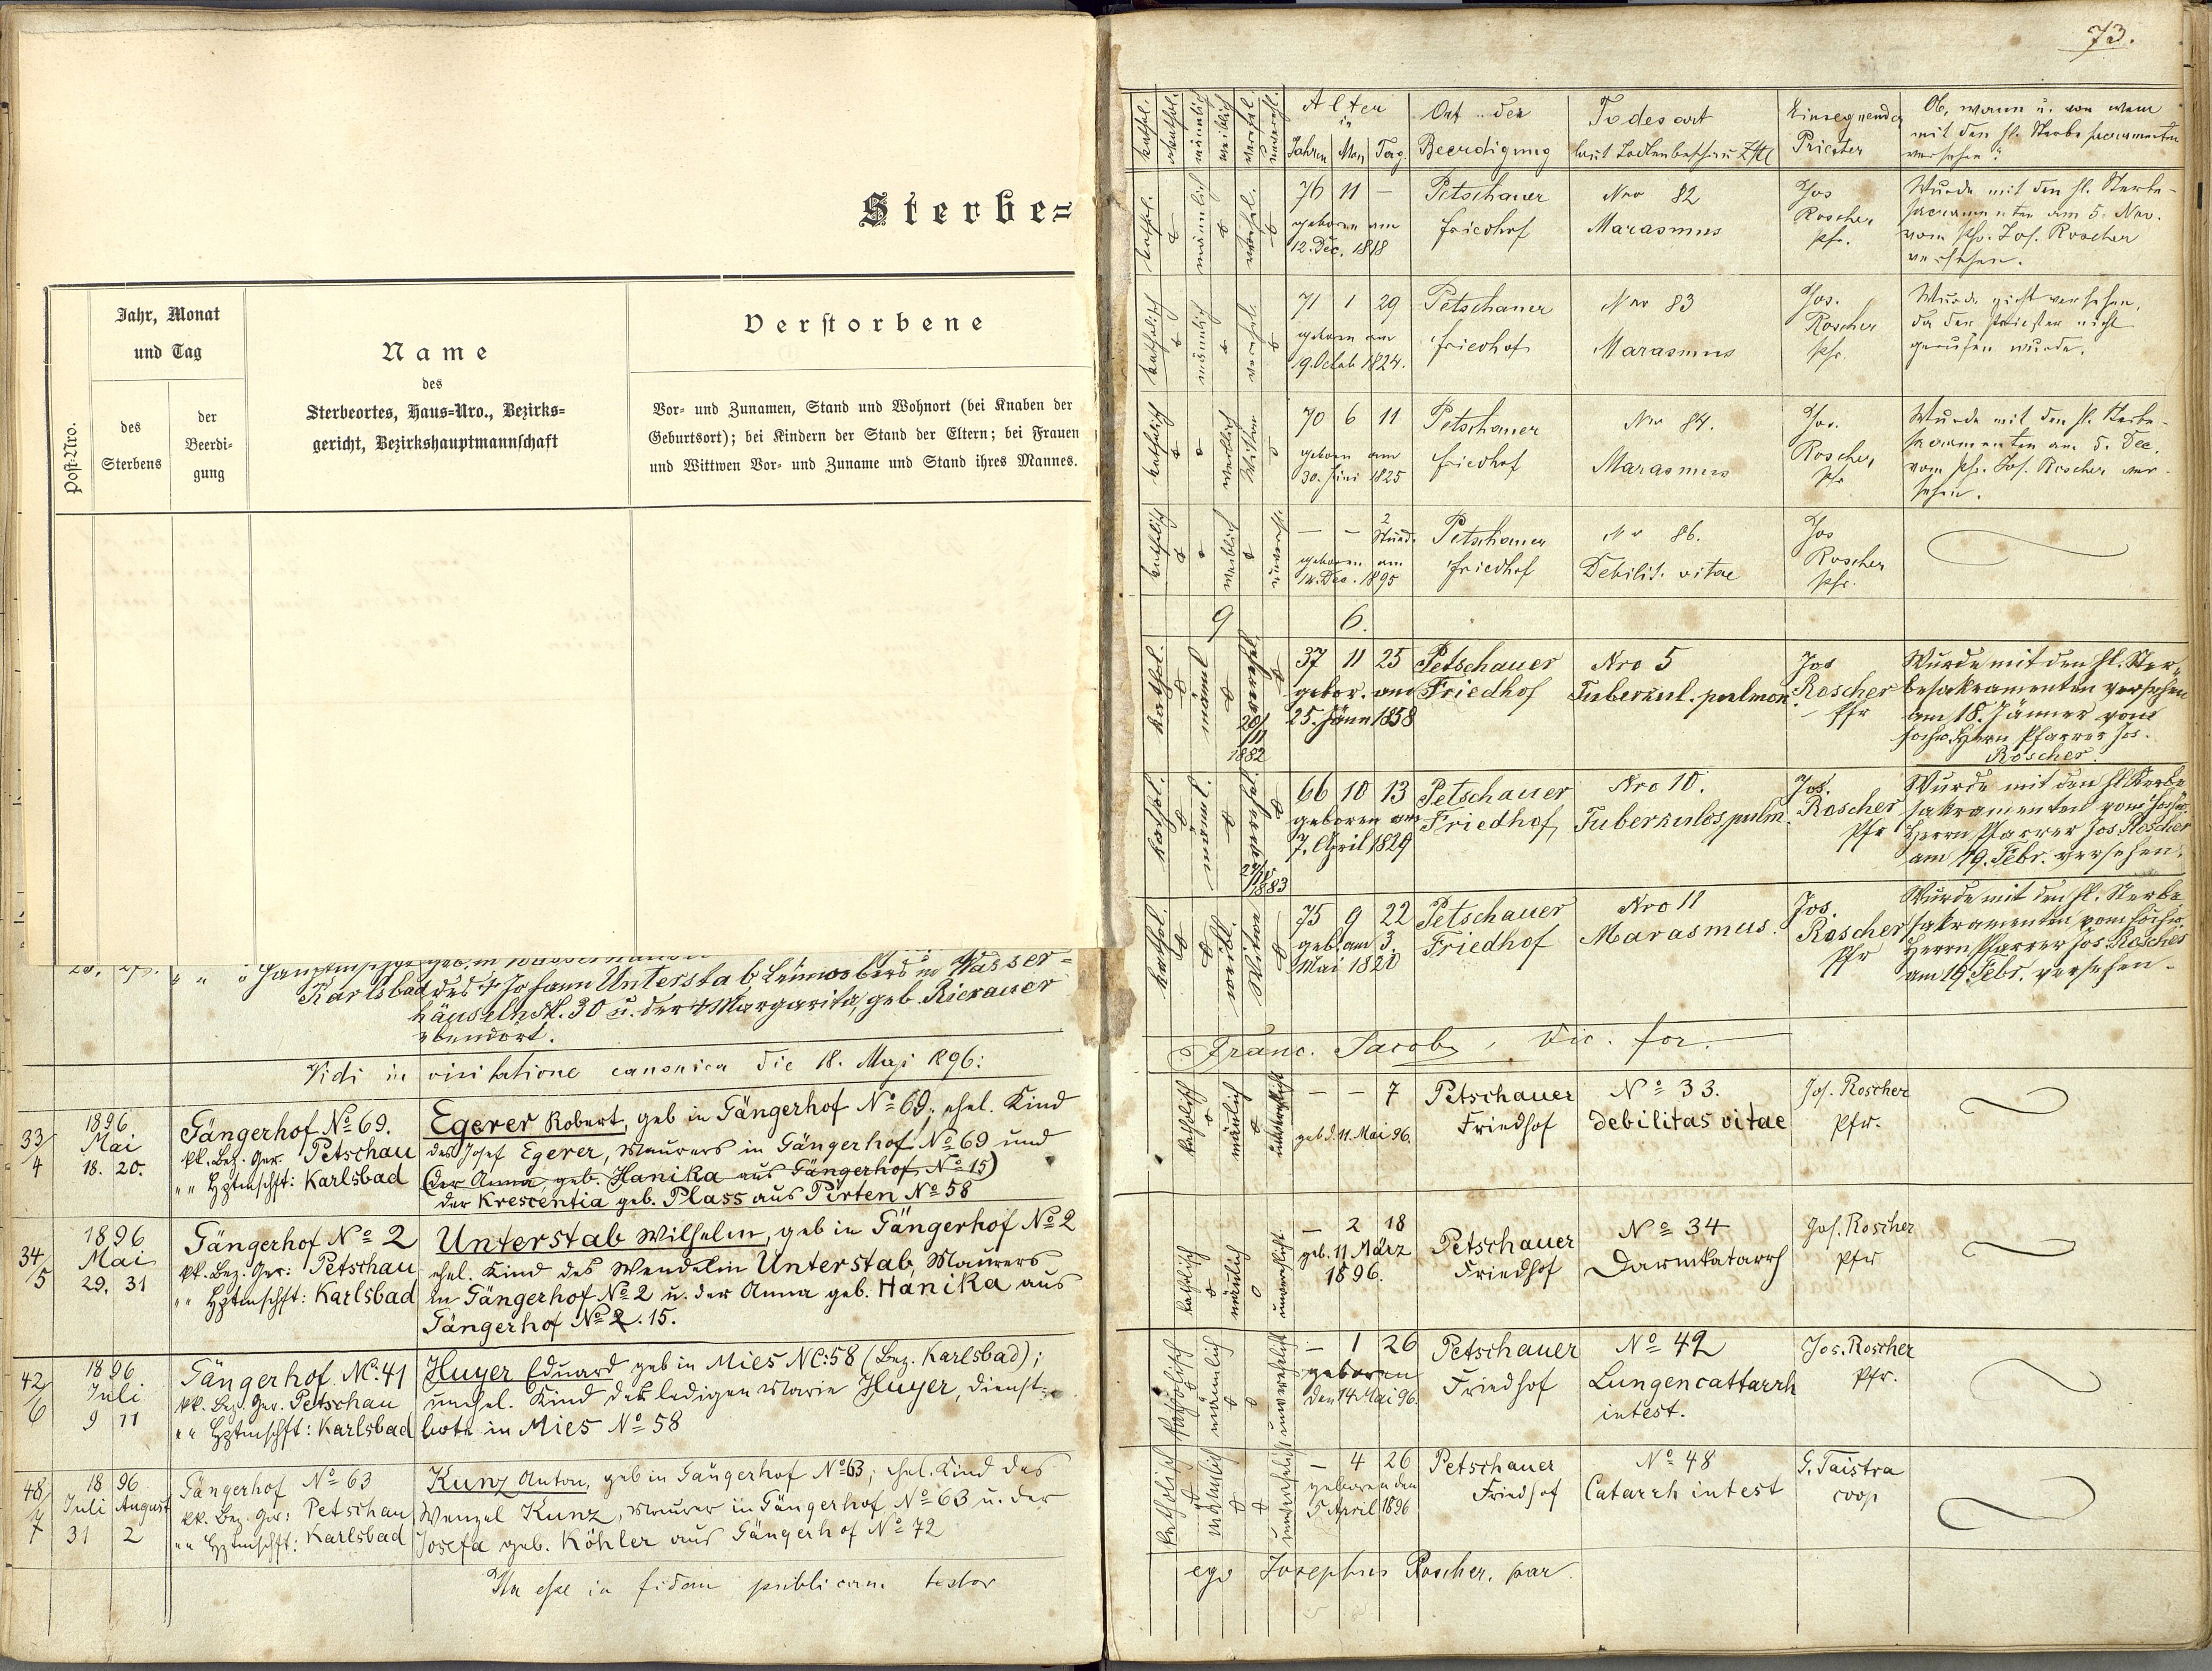 Sterbe=
Post-Nro.
Jahr, Monat
und Tag
des
Sterbens
der
Beerdi-
gung
Name
des
Sterbeortes, Haus-Nro., Bezirks=
gericht, Bezirkshauptmannschaft
Verstorbene
Vor- und Zunamen, Stand und Wohnort (bei Knaben der
Geburtsort); bei Kindern der Stand der Eltern; bei Frauen
und Wittwen Vor- und Zuname und Stand ihres Mannes.
Karlsbad des † Johann Unterstab in Wasser=
häuseln N. 30 u. der † Margarita, geb. Rierauer
ebendort.
Vidi in visitatione canonica die 18. Maji 1896:
33/4
1896
Mai
18. 20.
Gängerhof No 69.
kk. Bez. Ger. Petschau
" " Hptmschft: Karlsbad
Egerer Robert, geb in Gängerhof No 69; ehel. Kind
des Josef Egerer, Maurers in Gängerhof No 69 und
(der Anna, geb. Hanika aus Gängerhof No 15)
der Krescentia geb. Plass aus Pirten No 58
34/5
1896
Mai
29. 31
Gängerhof No 2
kk. Bez. Ger: Petschau
" " Hptmschft: Karlsbad
Unterstab Wilhelm, geb in Gängerhof No 2
ehel. Kind des Wendelin Unterstab, Maurers
in Gängerhof No 2 u. der Anna geb. Hanika aus
Gängerhof No 2. 15.
42/6
1896
Juli
9 11
Gängerhof. NC: 41
kk. Bez. Ger. Petschau
" " Hptmschft: Karlsbad
Huyer Eduard geb in Mies NC: 58 (Bez. Karlsbad);
unehel. Kind der ledigen Marie Huyer, Dienst=
bote in Mies No 58
48/7
1896
Juli August
31 2
Gängerhof No 63
kk. Bez. Ger: Petschau
" " Hptmschft: Karlsbad
Kunz Anton, geb in Gängerhof No 63; ehel. Kind des
Wenzel Kunz, Maurer in Gängerhof No 63 u. der
Josefa geb. Köhler aus Gängerhof No 72
Ita esse in fidem publicam testor
73.
kathol.
akathol.
männlich
weiblich
verehel.
unverehl.
Alter
in
Jahren Mon Tag
Ort der
Beerdigung
Todesart
laut Todtenbeschau Zttl
Einsegnender
Priester
Ob, wann u. von wem
mit den hl. Sterbesacramenten
versehen?
kathol.
männlich
verehel.
76 11 –
geboren am
12. Dec. 1818
Petschauer
friedhof
Nro 82
Marasmus
Jos
Roscher
Pfr.
Wurde mit den hl. Sterbe-
sacramenten am 5. Nov.
vom Pfr. Jos. Roscher
versehen.
katholisch
männlich
verehel.
71 1 29
geboren am
9. Octob 1824.
Petschauer
friedhof
Nro 83
Marasmus
Jos.
Roscher
Pfr.
Wurde nicht versehen,
da der Priester nicht
gerufen wurde.
katholisch
weiblich
Wittwe
70 6 11
geboren am
30. Juni 1825
Petschauer
friedhof
Nro 84.
Marasmus
Jos.
Roscher
Pfr
Wurde mit den hl. Sterbe-
sacramenten am 5. Dec.
vom Pfr. Jos. Roscher ver-
sehen.
katholisch
weiblich
unvereh.
– – 2
Stund.
geboren am
14. Dec. 1895
Petschauer
friedhof
Nr 86.
Debilit. vitae
Jos
Roscher
Pfr.
9 6.
kathol.
männl
verehel
20/
/11
1882
37 11 25
gebor. am
25. Jänn 1858
Petschauer
Friedhof
Nro 5
Tuberkul. pulmon.
Jos
Roscher
Pfr
Wurde mit den hl. Ster-
besakramenten versehen
am 18. Jänner vom
hochw. Herrn Pfarrer Jos.
Roscher.
kathol.
männl.
verehel.
1883
66 10 13
geboren am
7. April 1829
Petschauer
Friedhof
Nro 10.
Tuberkulos. pulm.
Jos.
Roscher
Pfr
Wurde mit den hl. Sterbe
sakramenten vom hochw.
Herrn Pfarrer Jos Roscher
am 19. Febr. versehen.
kathol.
weibl.
Witwe
75 9 22
geb. am 3.
Mai 1820
Petschauer
Friedhof
Nro 11
Marasmus.
Jos.
Roscher
Pfr
Wurde mit den hl. Sterbe
sakramenten vom hochw
Herrn Pfarrer Jos Roscher
am 19 Febr. versehen.
Franc. Jacob, Vic. for.
katholisch
mänlich
unverehlicht
– – 7
geb d. 11. Mai 96.
Petschauer
Friedhof
No 33.
Debilitas vitae
Jos. Roscher
Pfr.
katholich
mänlich
unverehlicht
– 2 18
geb. 11 März
1896.
Petschauer
Friedhof
No 34
Darmkatarrh
Jos. Roscher
Pfr
katholisch
männlich
unverehelicht
– 1 26
geboren
den 14. Mai 96.
Petschauer
Friedhof
No 42
Lungencattarrh
intest.
Jos. Roscher
Pfr.
katholisch
männlich
unverehelicht
– 4 26
geboren den
5 April 1896
Petschauer
Friedhof
No 48
Catarrh intest
G. Taistra
coop
ego Josephus Roscher. par.